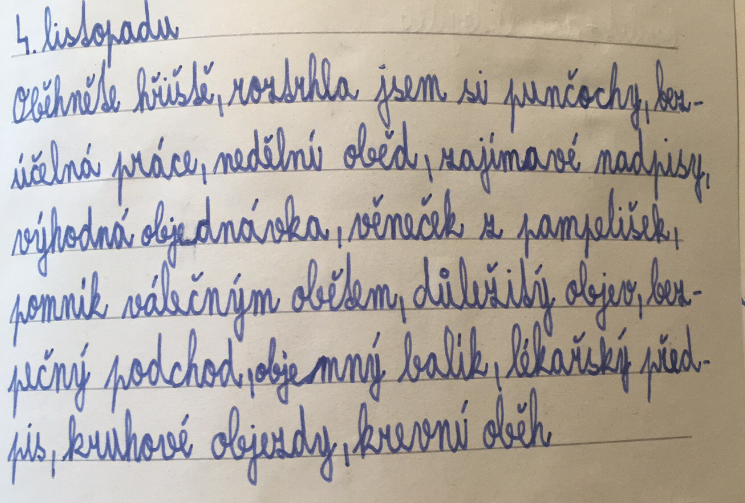 4. listopadu
Oběhněte hřiště, roztrhla jsem si punčochy, bez-
účelná práce, nedělní oběd, zajímavé nadpisy,
výhodná objednávka, věneček z pampelišek,
pomník válečným obětem, důležitý objev, bez-
pečný podchod, objemný balík, lékařský před-
pis, kruhové objezdy, krevní oběh